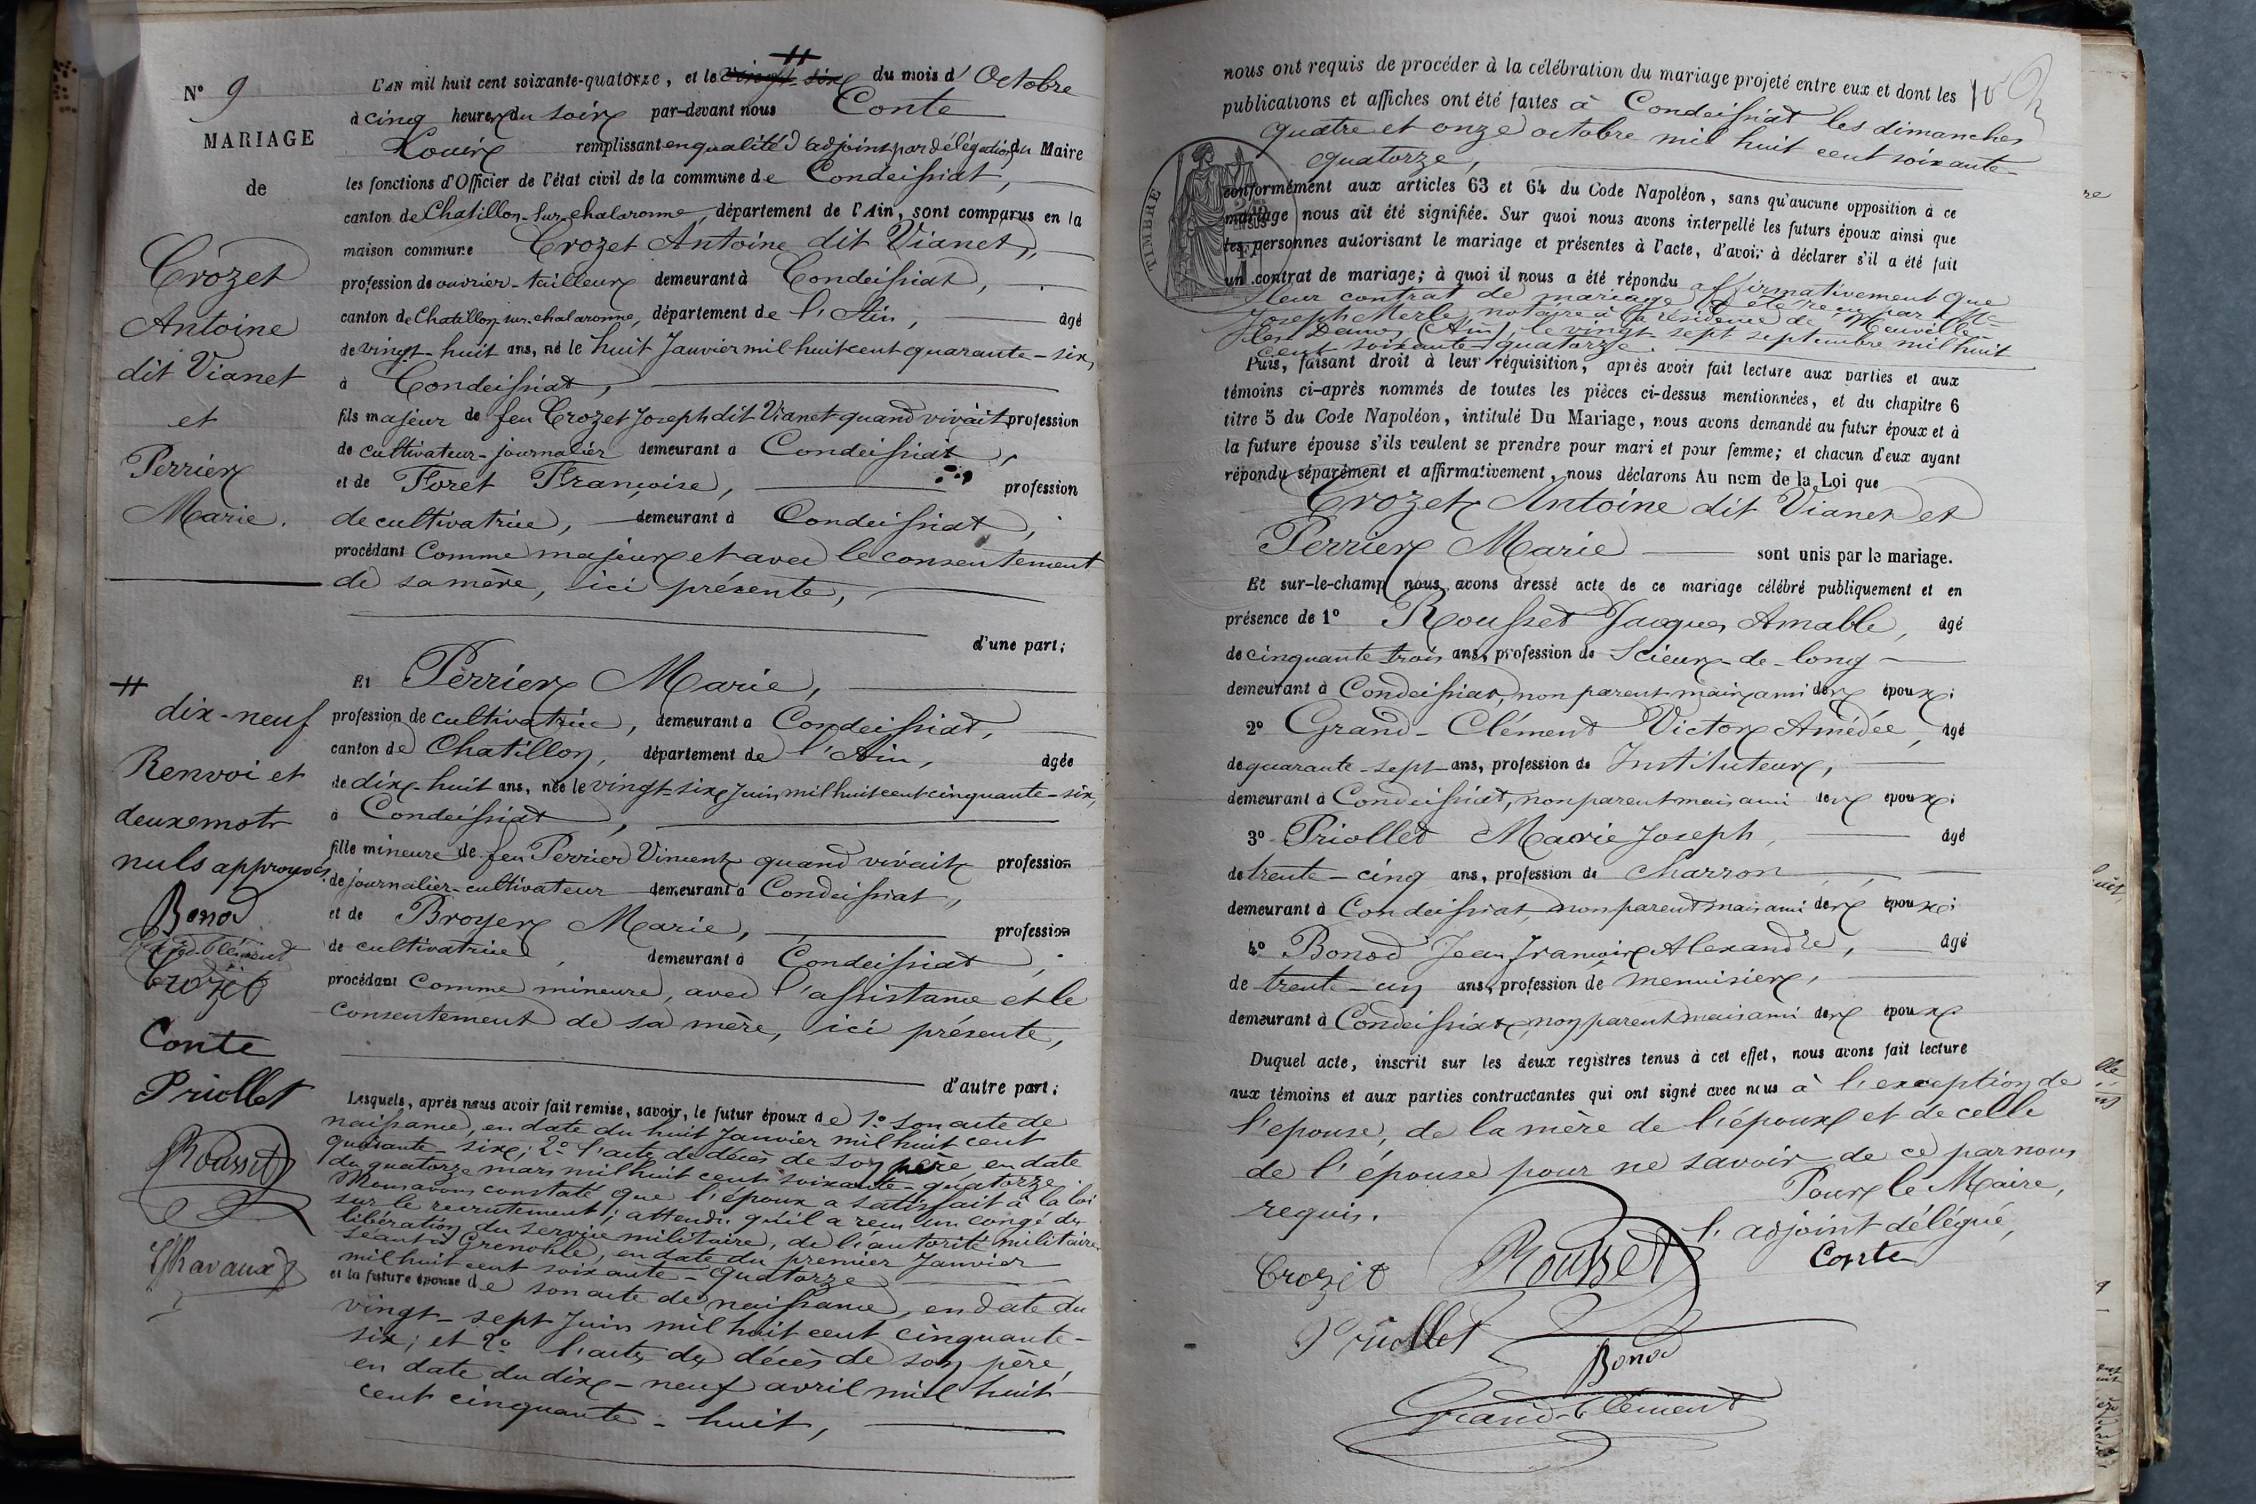 N° 9
MARIAGE
de
Crozet
Antoine
dit Vianet
et
Perrier
Marie.
#
dix-neuf
Renvoi et
deux mots
nuls approuvés
Bonod
Grand-Clément
Crozet
Conte
Priollet
Rousset
Ravaux
#
L'AN mil huit cent soixante-quatorze, et le vingt-six du mois d'Octobre
à cinq heures du soir par-devant nous Conte
Louis remplissant en qualité d'adjoint par délégation du Maire
les fonctions d'Officier de l'état civil de la commune de Condeissiat,
canton de Chatillon-sur-chalaronne, département de l'Ain, sont comparus en la
maison commune Crozet Antoine dit Vianet,
profession de ouvrier-tailleur demeurant à Condeissiat,
canton de Chatillon-sur-chalaronne, département de l'Ain, âgé
de vingt-huit ans, né le huit Janvier mil huit cent quarante-six,
à Condeissiat,
fils majeur de feu Crozet Joseph dit Vianet quand vivait profession
de cultivateur-journalier demeurant à Condeissiat,
et de Foret Françoise, profession
de cultivatrice, demeurant à Condeissiat,
procédant Comme majeur et avec le consentement
de sa mère, ici présente,
d'une part;
Et Perrier Marie,
profession de cultivatrice, demeurant à Condeissiat,
canton de Chatillon, département de l'Ain, âgée
de dix-huit ans, née le vingt-six Juin mil huit cent cinquante-six,
à Condeissiat,
fille mineure de feu Perrier Vincent quand vivait profession
de journalier-cultivateur demeurant à Condeissiat,
et de Broyer Marie, profession
de cultivatrice, demeurant à Condeissiat,
procédant Comme mineure, avec l'assistance et le
consentement de sa mère, ici présente,
d'autre part;
Lesquels, après nous avoir fait remise, savoir, le futur époux de 1° son acte de
naissance, en date du huit Janvier mil huit cent
quarante-six; 2° l'acte de décès de son père en date
du quatorze mars mil huit cent soixante-quatorze.
Nous avons constaté que l'époux a satisfait à la loi
sur le recrutement; attendu qu'il a reçu un congé de
libération du service militaire, de l'autorité militaire
séant à Grenoble, en date du premier Janvier
mil huit cent soixante-quatorze
et la future épouse de son acte de naissance, en date du
vingt-sept Juin mil huit cent cinquante-
six; et 2° l'acte de décès de son père,
en date du dix-neuf avril mil huit
cent cinquante-huit,
nous ont requis de procéder à la célébration du mariage projeté entre eux et dont les
publications et affiches ont été faites à Condeissiat les dimanches
quatre et onze octobre mil huit cent soixante-
quatorze,
TIMBRE
conformément aux articles 63 et 64 du Code Napoléon, sans qu'aucune opposition à ce
mariage nous ait été signifiée. Sur quoi nous avons interpellé les futurs époux ainsi que
les personnes autorisant le mariage et présentes à l'acte, d'avoir à déclarer s'il a été fait
un contrat de mariage; à quoi il nous a été répondu affirmativement que
leur contrat de mariage a été reçu par Me
Joseph Merle, notaire à la résidence de Neuville-
les-Dames (Ain), le vingt-sept septembre mil huit
cent soixante-quatorze.
Puis, faisant droit à leur réquisition, après avoir fait lecture aux parties et aux
témoins ci-après nommés de toutes les pièces ci-dessus mentionnées, et du chapitre 6
titre 5 du Code Napoléon, intitulé Du Mariage, nous avons demandé au futur époux et à
la future épouse s'ils veulent se prendre pour mari et pour femme; et chacun d'eux ayant
répondu séparément et affirmativement, nous déclarons Au nom de la Loi que
Crozet Antoine dit Vianet et
Perrier Marie sont unis par le mariage.
Et sur-le-champ nous avons dressé acte de ce mariage célébré publiquement et en
présence de 1° Rousset Jacques Amable, âgé
de cinquante trois ans, profession de Scieur-de-long
demeurant à Condeissiat, non parent mais ami des époux;
2° Grand-Clément Victor Amédée, âgé
de quarante-sept ans, profession de Instituteur,
demeurant à Condeissiat, non parent mais ami des époux;
3° Priollet Marie Joseph, âgé
de trente-cinq ans, profession de charron
demeurant à Condeissiat non parent mais ami des époux;
4° Bonod Jean François Alexandre, âgé
de trente-un ans, profession de menuisier,
demeurant à Condeissiat, non parent mais ami des époux
Duquel acte, inscrit sur les deux registres tenus à cet effet, nous avons fait lecture
aux témoins et aux parties contractantes qui ont signé avec nous à l'exception de
l'epouse, de la mère de l'époux et de celle
de l'épouse pour ne savoir de ce par nous
requis.
Pour le Maire,
l'adjoint délégué,
Conte
Crozet Rousset
Priollet
Bonod
Grand-Clément